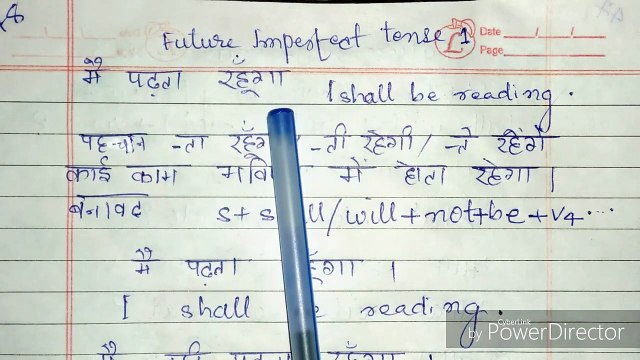 Future Imperfect tense 1
Date / /
Page
मैं पढ़ता रहूँगा I shall be reading.
पहचान -ता रहूँगा / -ती रहेगी / -ते रहेंगे
काई काम में होता रहेगा।
बनावट S+ /will+not+be+V4...
मैं पढ़ता ।
I shall reading.
CyberLink
by PowerDirector